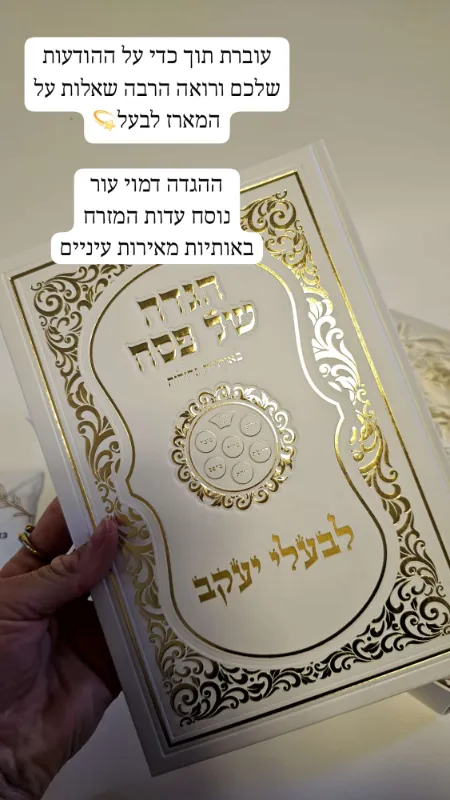 עוברת תוך כדי על ההודעות
שלכם ורואה הרבה שאלות על
המארז לבעל💫
ההגדה דמוי עור
נוסח עדות המזרח
באותיות מאירות עיניים
הגדה
של פסח
לבעלי יעקב